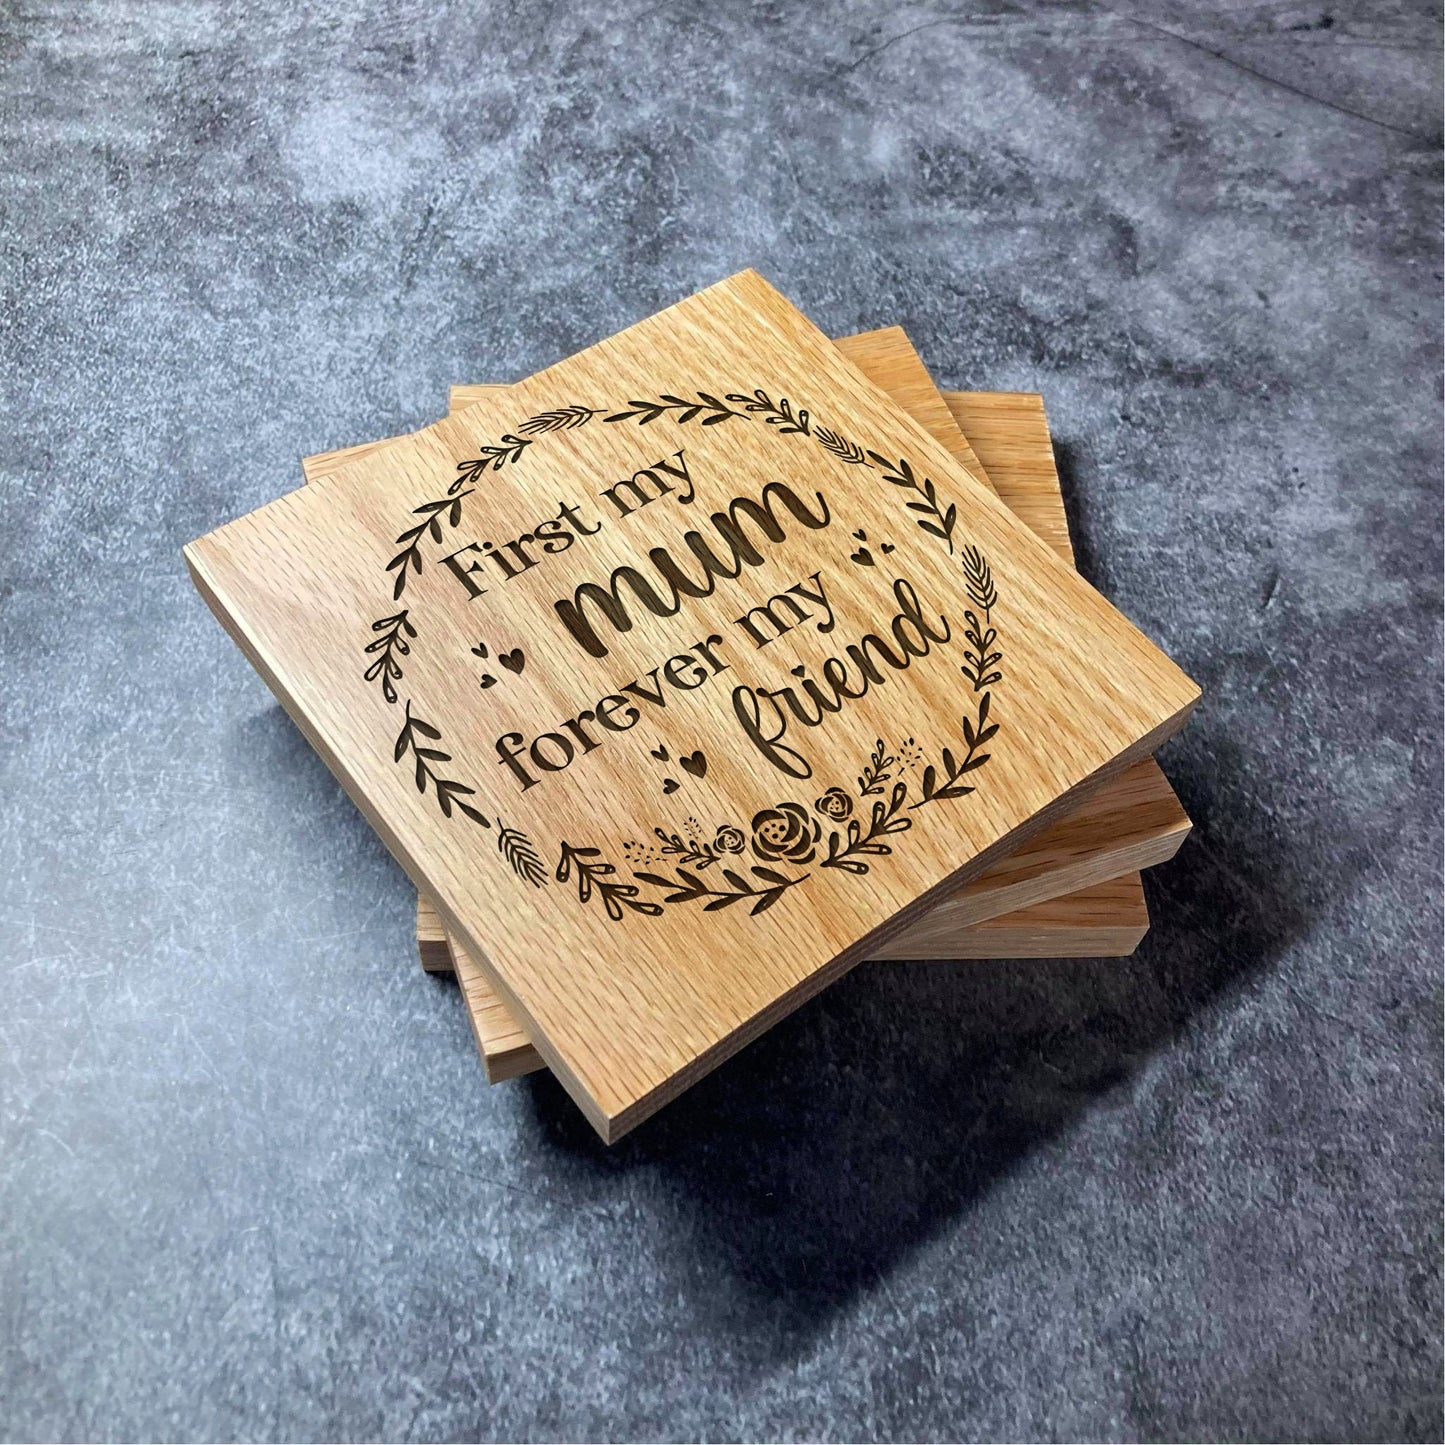 First my
mum
forever my
friend